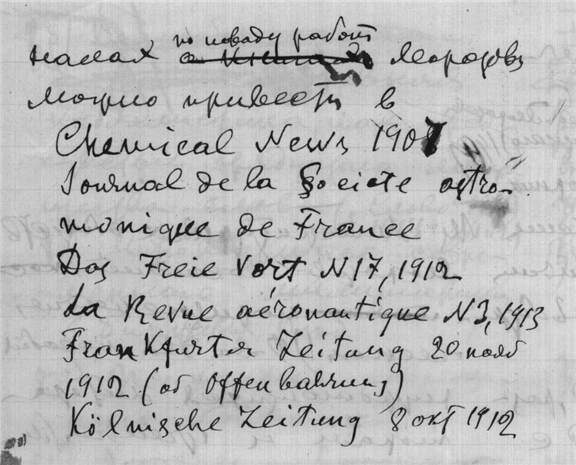 по поводу работ
Морозова
можно привести в
Chemical News 1907
Journal de la Societe astro-
nomique de France
Das Freie Wort N17, 1912
La Revue aéronautique N3, 1913
Frankfurter Zeitung 20 нояб
1912 (об Offenbahrung)
Kölnische Zeitung 8 окт 1912